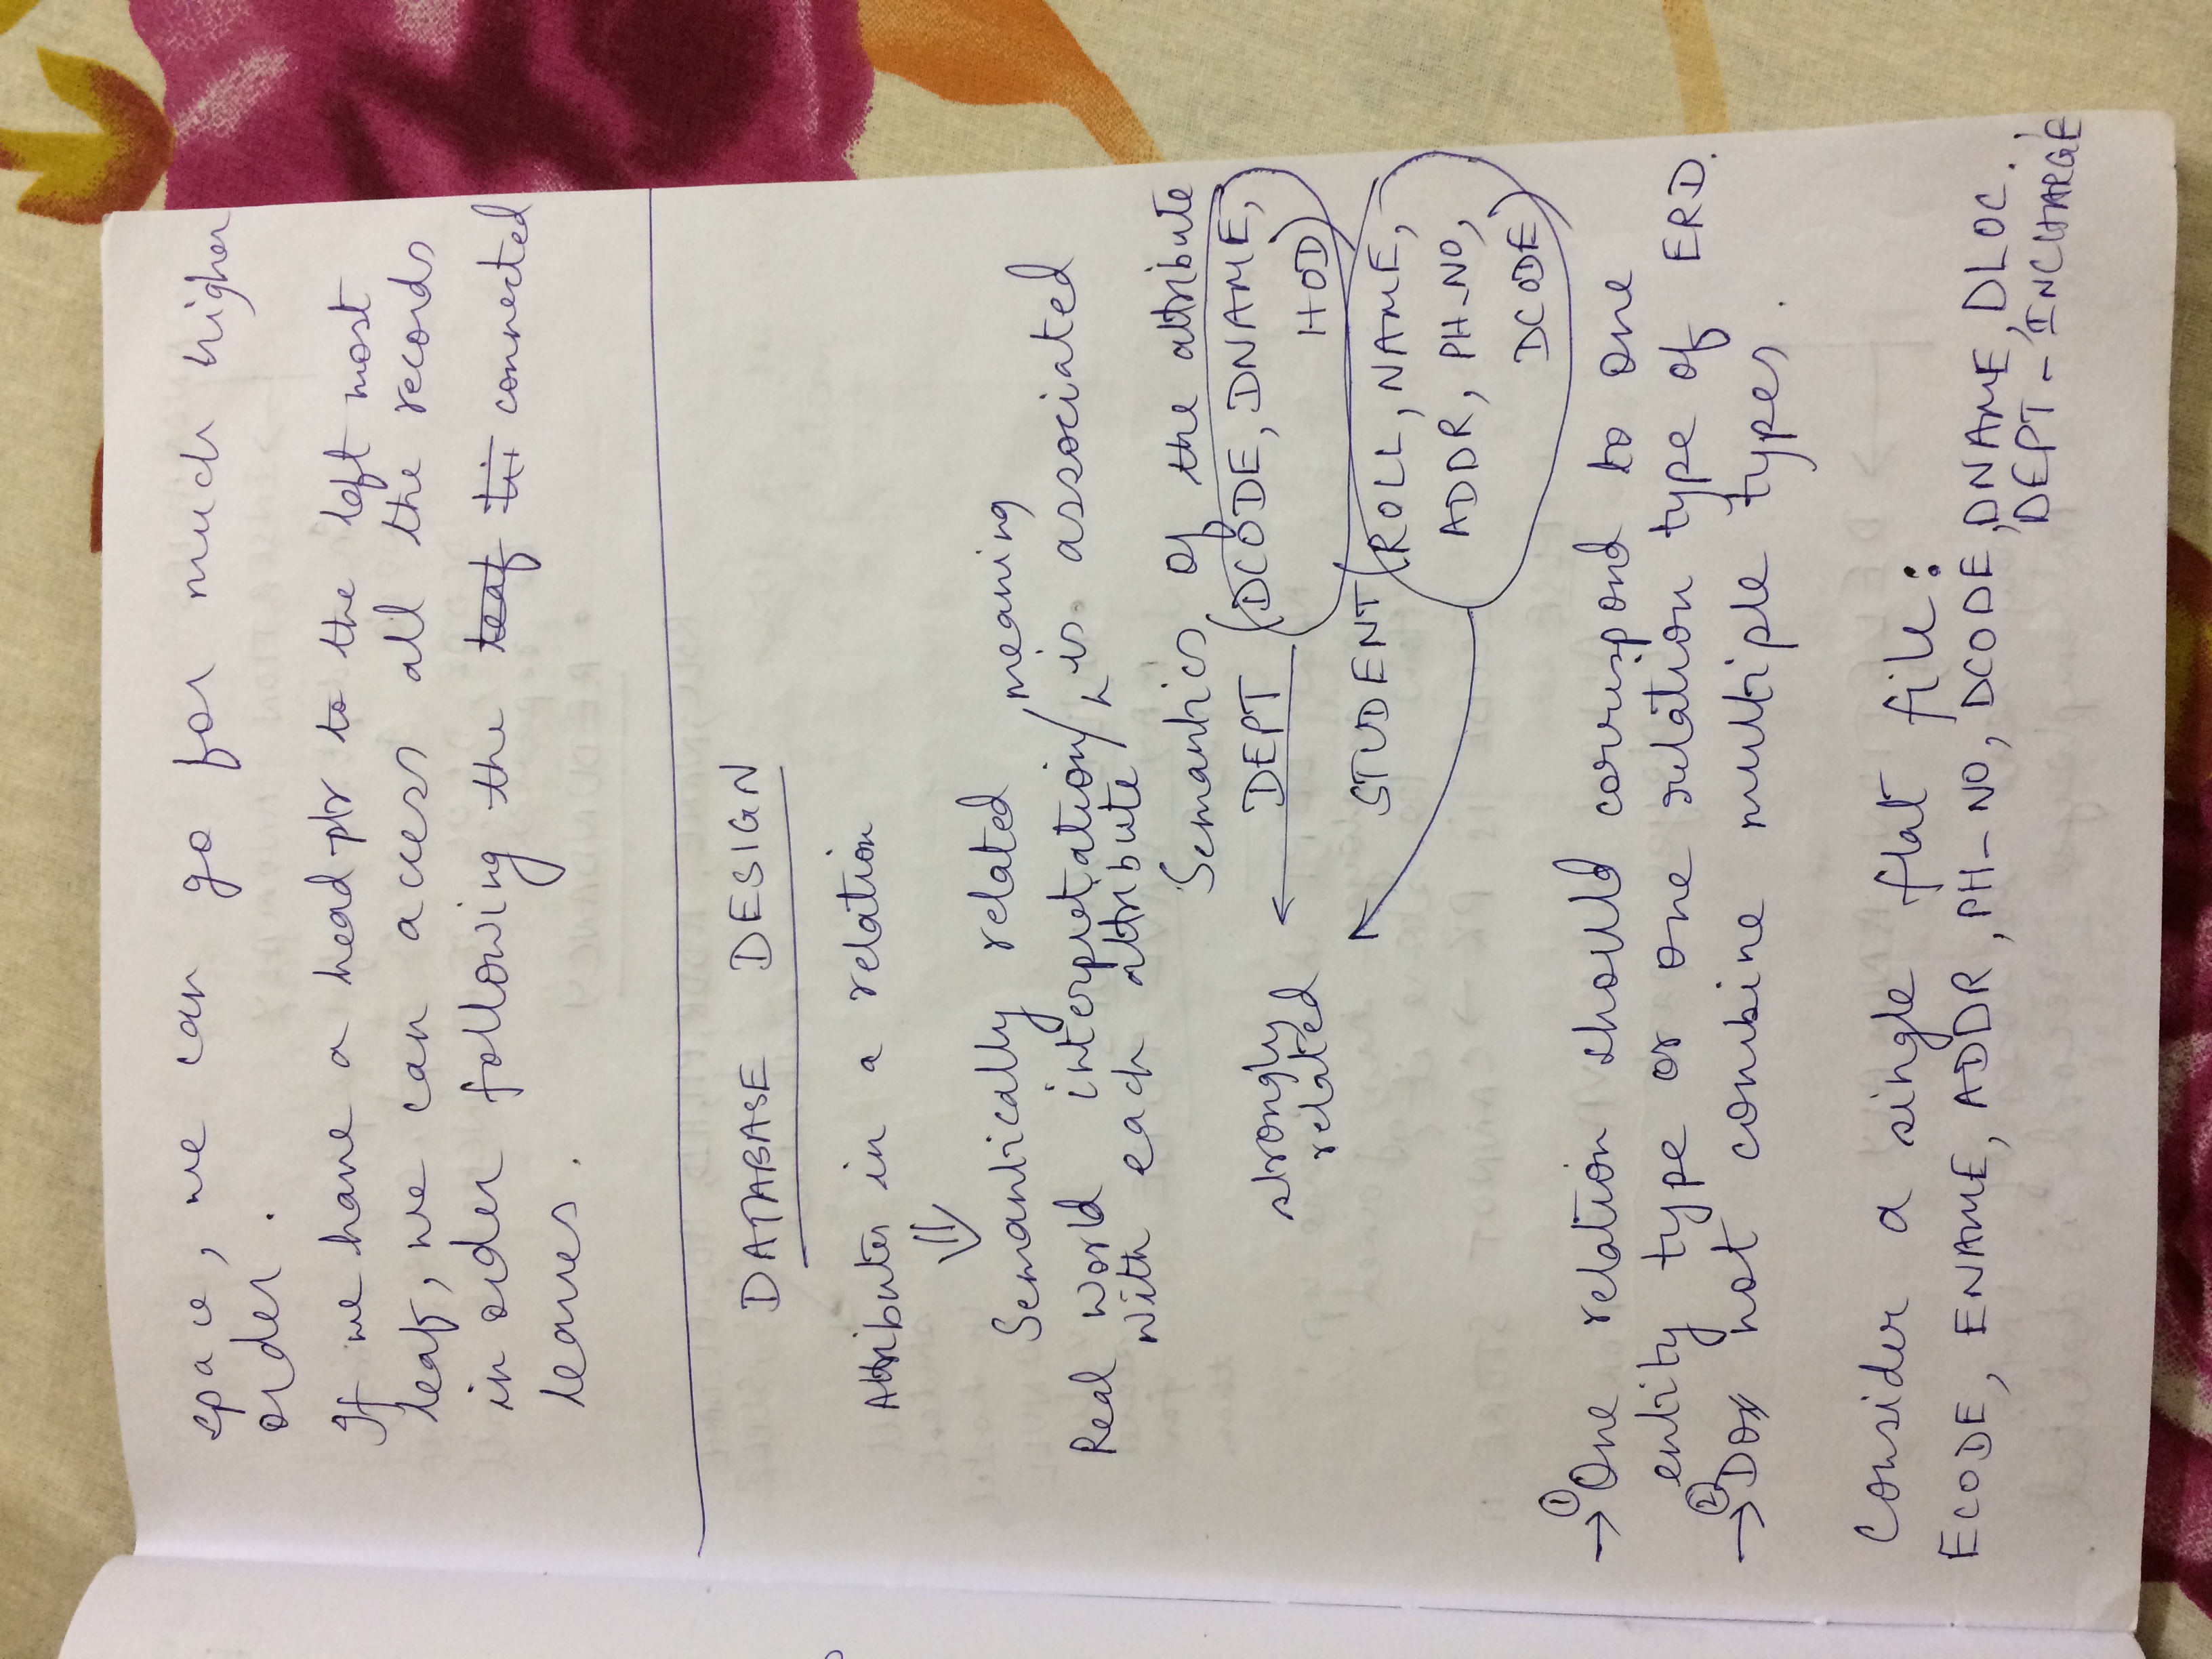 space, we can go for much higher
order.
If we have a head ptr to the left most
leaf, we can access all the records
in order following the leaf connected
leaves.
DATABASE DESIGN
Attributes in a relation
⇓
Semantically related
meaning
Real world interpretation / is associated
with each attribute
Semantics of the attribute
strongly related
DEPT (DCODE, DNAME,
HOD)
STUDENT (ROLL, NAME,
ADDR, PH_NO,
DCODE)
→ ① One relation should correspond to one
entity type or one relation type of ERD.
→ ② Do not combine multiple types.
Consider a single flat file:
ECODE, ENAME, ADDR, PH_NO, DCODE, DNAME, DLOC,
DEPT_INCHARGE